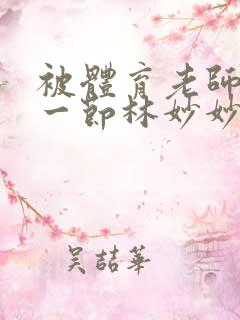 被體育老師
一節林妙妙
吴喆華